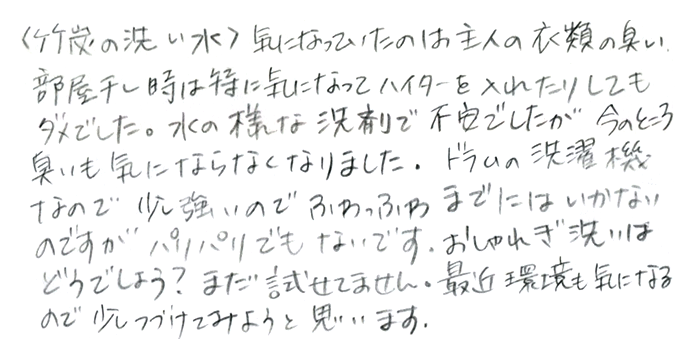 〈竹炭の洗い水〉気になっていたのは主人の衣類の臭い
部屋干し時は特に気になってハイターを入れたりしても
ダメでした。水の様な洗剤で不安でしたが今のところ
臭いも気にならなくなりました。ドラムの洗濯機
なので少し強いのでふわっふわまでにはいかない
のですがパリパリでもないです。おしゃれぎ洗いは
どうでしょう？まだ試せてません。最近環境も気になる
ので少しつづけてみようと思います。